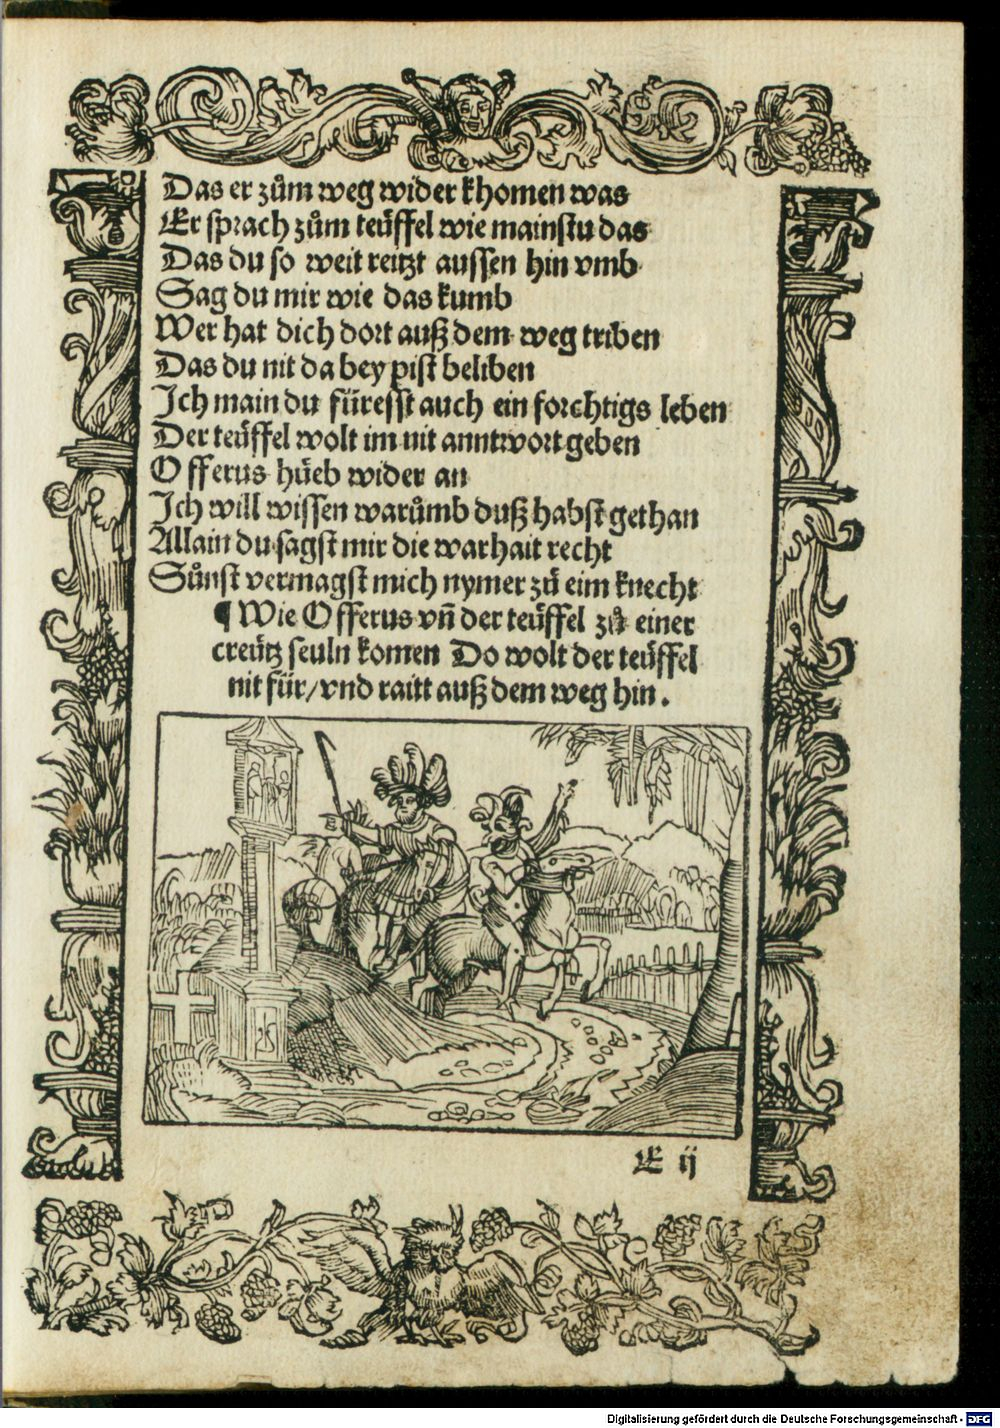 Das er zům weg wider khomen was
Er sprach zům teüffel wie mainstu das
Das du so weit reitzt aussen hin vmb
Sag du mir wie das kumb
Wer hat dich dort auß dem weg triben
Das du nit da bey pist beliben
Ich main du füresst auch ein forchtigs leben
Der teüffel wolt im nit anntwort geben
Offerus hüeb wider an
Ich will wissen warůmb duß habst gethan
Allain du sagst mir die warhait recht
Sůnst vermagst mich nymer zů eim knecht
¶ Wie Offerus vñ der teüffel zů einer
creütz seuln komen Do wolt der teüffel
nit für/vnd raitt auß dem weg hin.
E ij
Digitalisierung gefördert durch die Deutsche Forschungsgemeinschaft - DFG